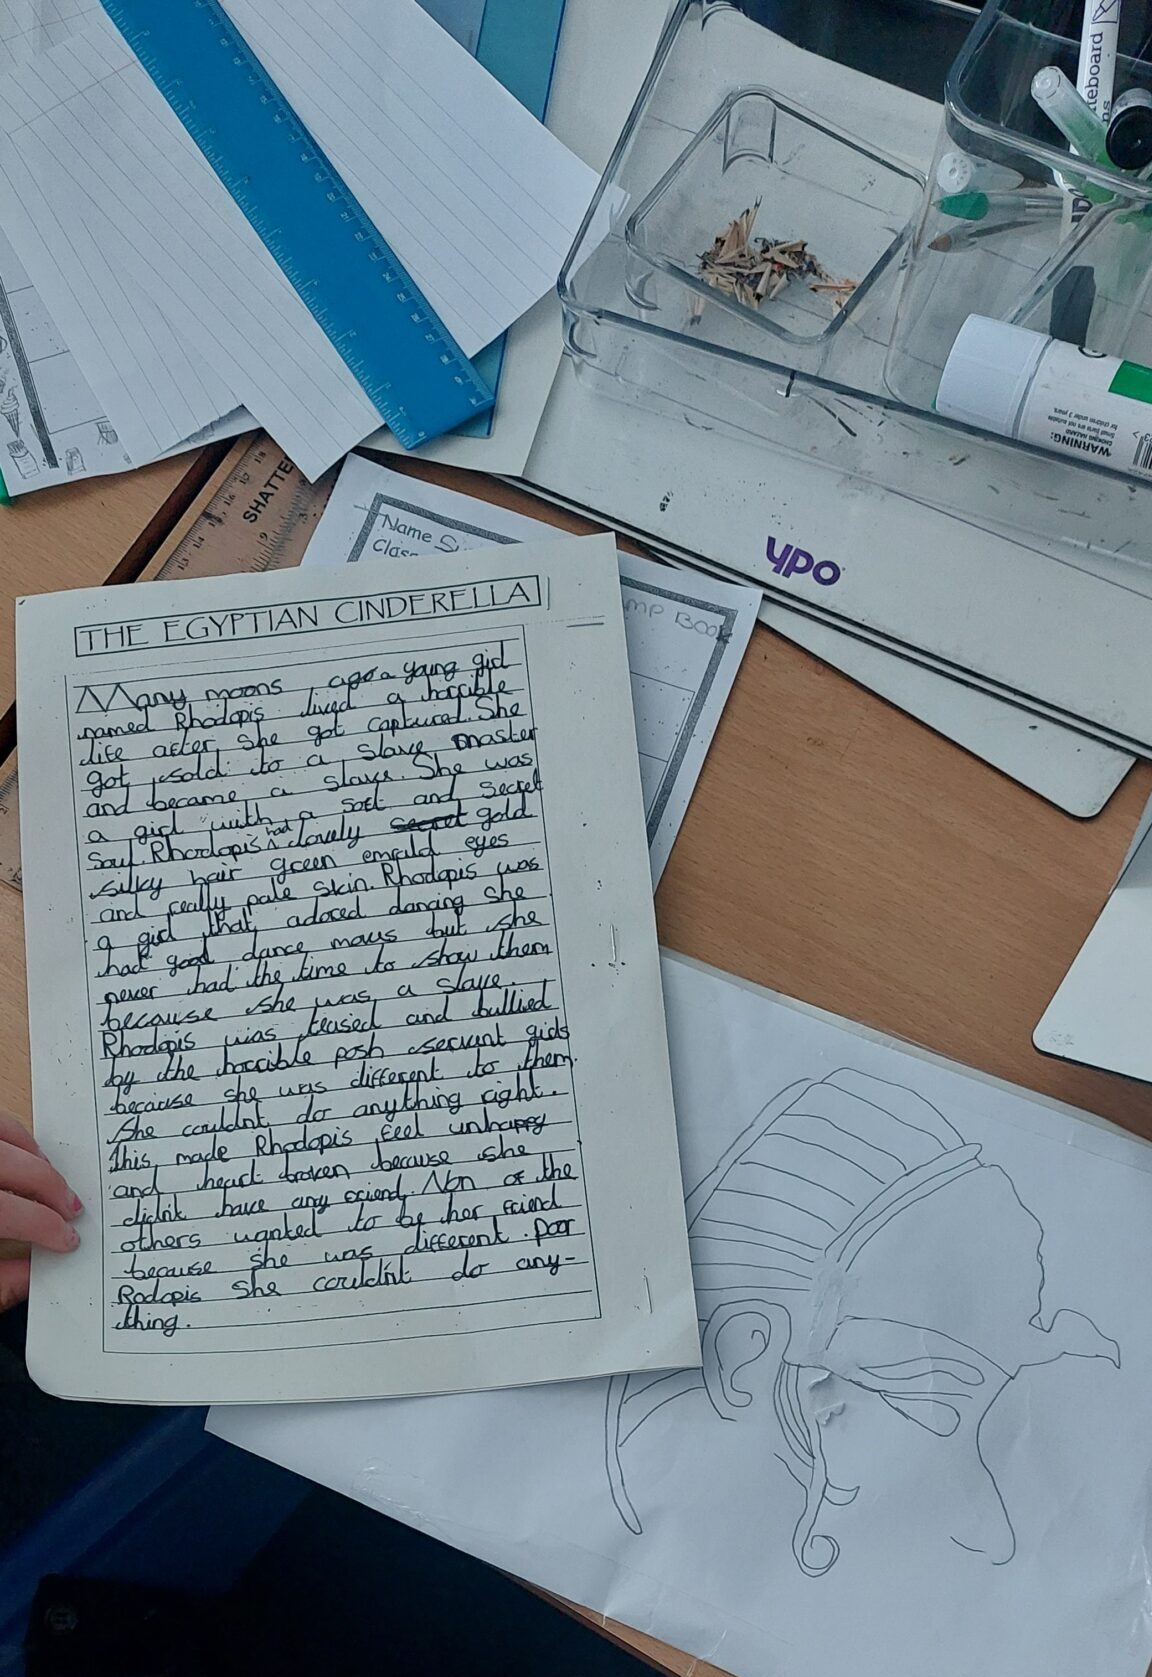 THE EGYPTIAN CINDERELLA
Many moons ago a young girl
named Rhodopis lived a horrible
life after she got captured. She
got sold to a slave master
and became a slave. She was
a girl with a soft and secret
soul. Rhodopis had lovely secret gold
silky hair green emrald eyes
and really pale skin. Rhodopis was
a girl that adored dancing she
had good dance movs but she
never had the time to show them
because she was a slave.
Rhodopis was teased and bullied
by the horrible posh servant girls
because she was different to them.
She couldnt do anything right.
This made Rhodopis feel unhappy
and heart broken because she
didn't have any friend. Non of the
others wanted to be her friend
because she was different. Poor
Rodopis she couldn't do any-
thing.
Name
Class
MP BOOK
SHATTE
ypo
WARNING:
CHOKING HAZARD
Small parts are not suitable
for children under 3 years.
eboard